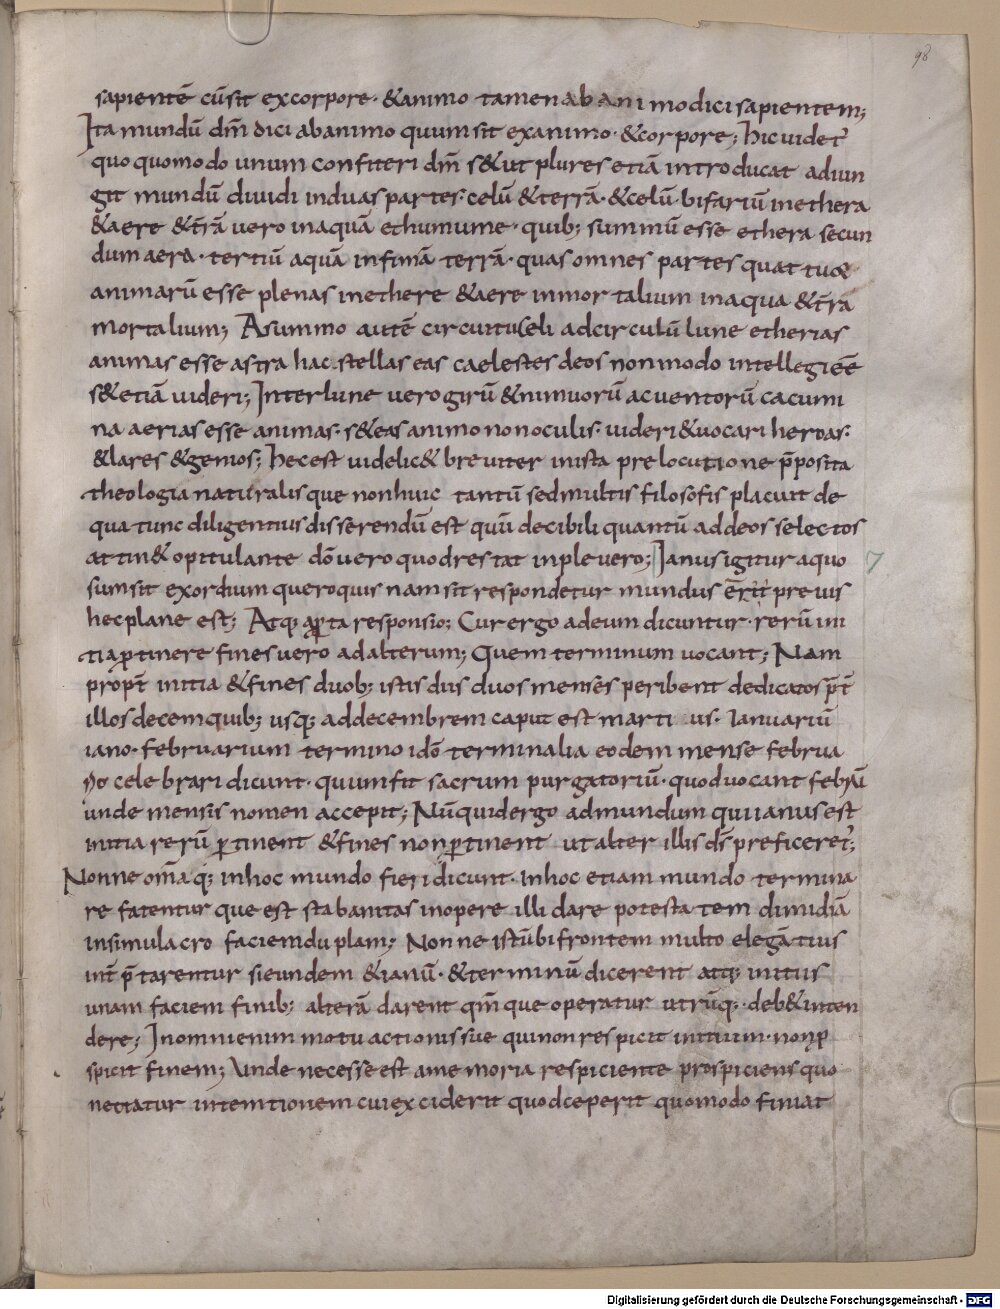 98
sapientē cū sit ex corpore· & animo tamen ab animo dici sapientem;
Ita mundū dm̄ dici ab animo quum sit ex animo· & corpore; Hic uidet̄
quoquomodo unum confiteri dm̄ s& ut plures etiā introducat adiun
git mundū diuidi in duas partes· celū & terrā· & celū· bifariū in ethera
& aere & t̄rā uero in aquā et humume· quib; summū esse ethera secun
dum aera· tertiū aquā infimā terrā· quas omnes partes quattuor
animarū esse plenas in ethere & aere inmortalium in aqua & t̄rā
mortalium; A summo autē circuitu celi ad circulū lune etherias
animas esse astra hac stellas eas caelestes deos non modo intellegi eē
s& etiā uideri; Inter lune uero girū & nimuorū ac uentorū cacumi
na aerias esse animas· s& eas animo non oculis· uideri & uocari heroas·
& lares & genios; Hec est uidelic& breuiter in ista prelocutione p̄posita
theologia naturalis que non huic tantū sed multis filosofis placuit de
qua tunc diligentius disserendū est quū de cibili quantū ad deos selectos
attin& opitulante dō uero quod restat inpleuero; Ianus igitur a quo
sumsit exordium quero quis nam sit respondetur mundus ē preuis
hec plane est; Atq; apta responsio; Cur ergo ad eum dicuntur· rerū ini
tia ptinere fines uero ad alterum; Quem terminum uocant; Nam
propt̄ initia & fines duob; istis diis duos menses peribent dedicatos p̄t̄
illos decem quib; usq; ad decembrem caput est martius· Ianuariū
iano· februarium termino idō terminalia eodem mense februa
rio celebrari dicunt· quum fit sacrum purgatoriū· quod uocant
unde mensis nomen accepit; Nūquid ergo ad mundum qui ianus est
initia rerū ptinent & fines non ptinent ut alter illis ds̄ preficeret̄;
Nonne om̄a q; in hoc mundo fieri dicunt· in hoc etiam mundo termina
re fatentur que est sta banitas in opere illi dare potestatem dimidiā
in simulacro faciem duplam; Nonne istū bifrontem multo elegātius
int̄ p̄tarentur si eundem & ianū· & terminū dicerent atq; initiis
unam faciem finib; alterā darent qm̄ que operatur utrūq;· deb& inten
dere; In omni enim motu actionis sue qui non respicit initium· non p
spicit finem; Unde necesse est a memoria respiciente prospiciens quo
nectatur intentionem cui exciderit quod ceperit quomodo finiat
Digitalisierung gefördert durch die Deutsche Forschungsgemeinschaft - DFG